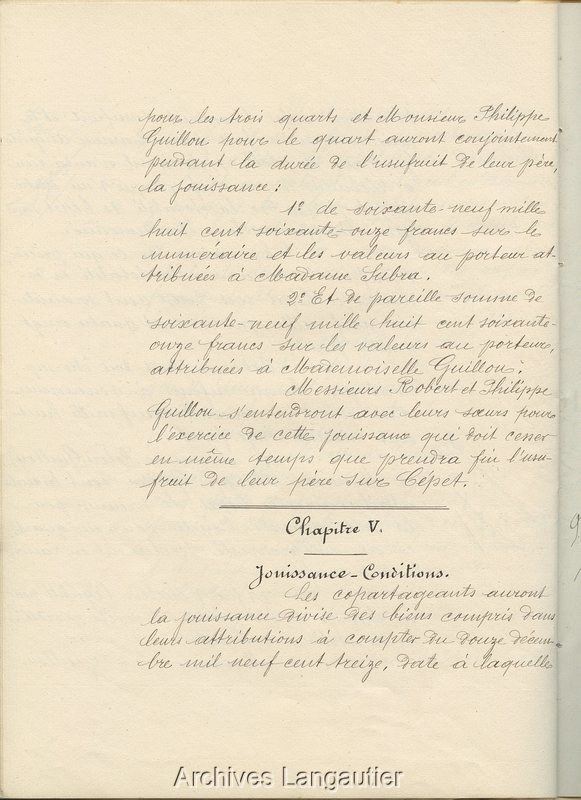 pour les trois quarts et Monsieur Philippe
Guillou pour le quart auront conjointement
pendant la durée de l'usufruit de leur père,
la jouissance:
1° de soixante-neuf mille
huit cent soixante-onze francs sur le
numéraire et les valeurs au porteur at-
tribuées à Madame Subra.
2° Et de pareille somme de
soixante-neuf mille huit cent soixante-
onze francs sur les valeurs au porteur,
attribuées à Mademoiselle Guillou.
Messieurs Robert et Philippe
Guillou s'entendront avec leurs sœurs pour
l'exercice de cette jouissance qui doit cesser
en même temps que prendra fin l'usu-
fruit de leur père sur Cépet.
Chapitre V.
Jouissance-Conditions.
Les copartageants auront
la jouissance divise des biens compris dans
leurs attributions à compter du douze décem-
bre mil neuf cent treize, date à laquelle
Archives Langautier